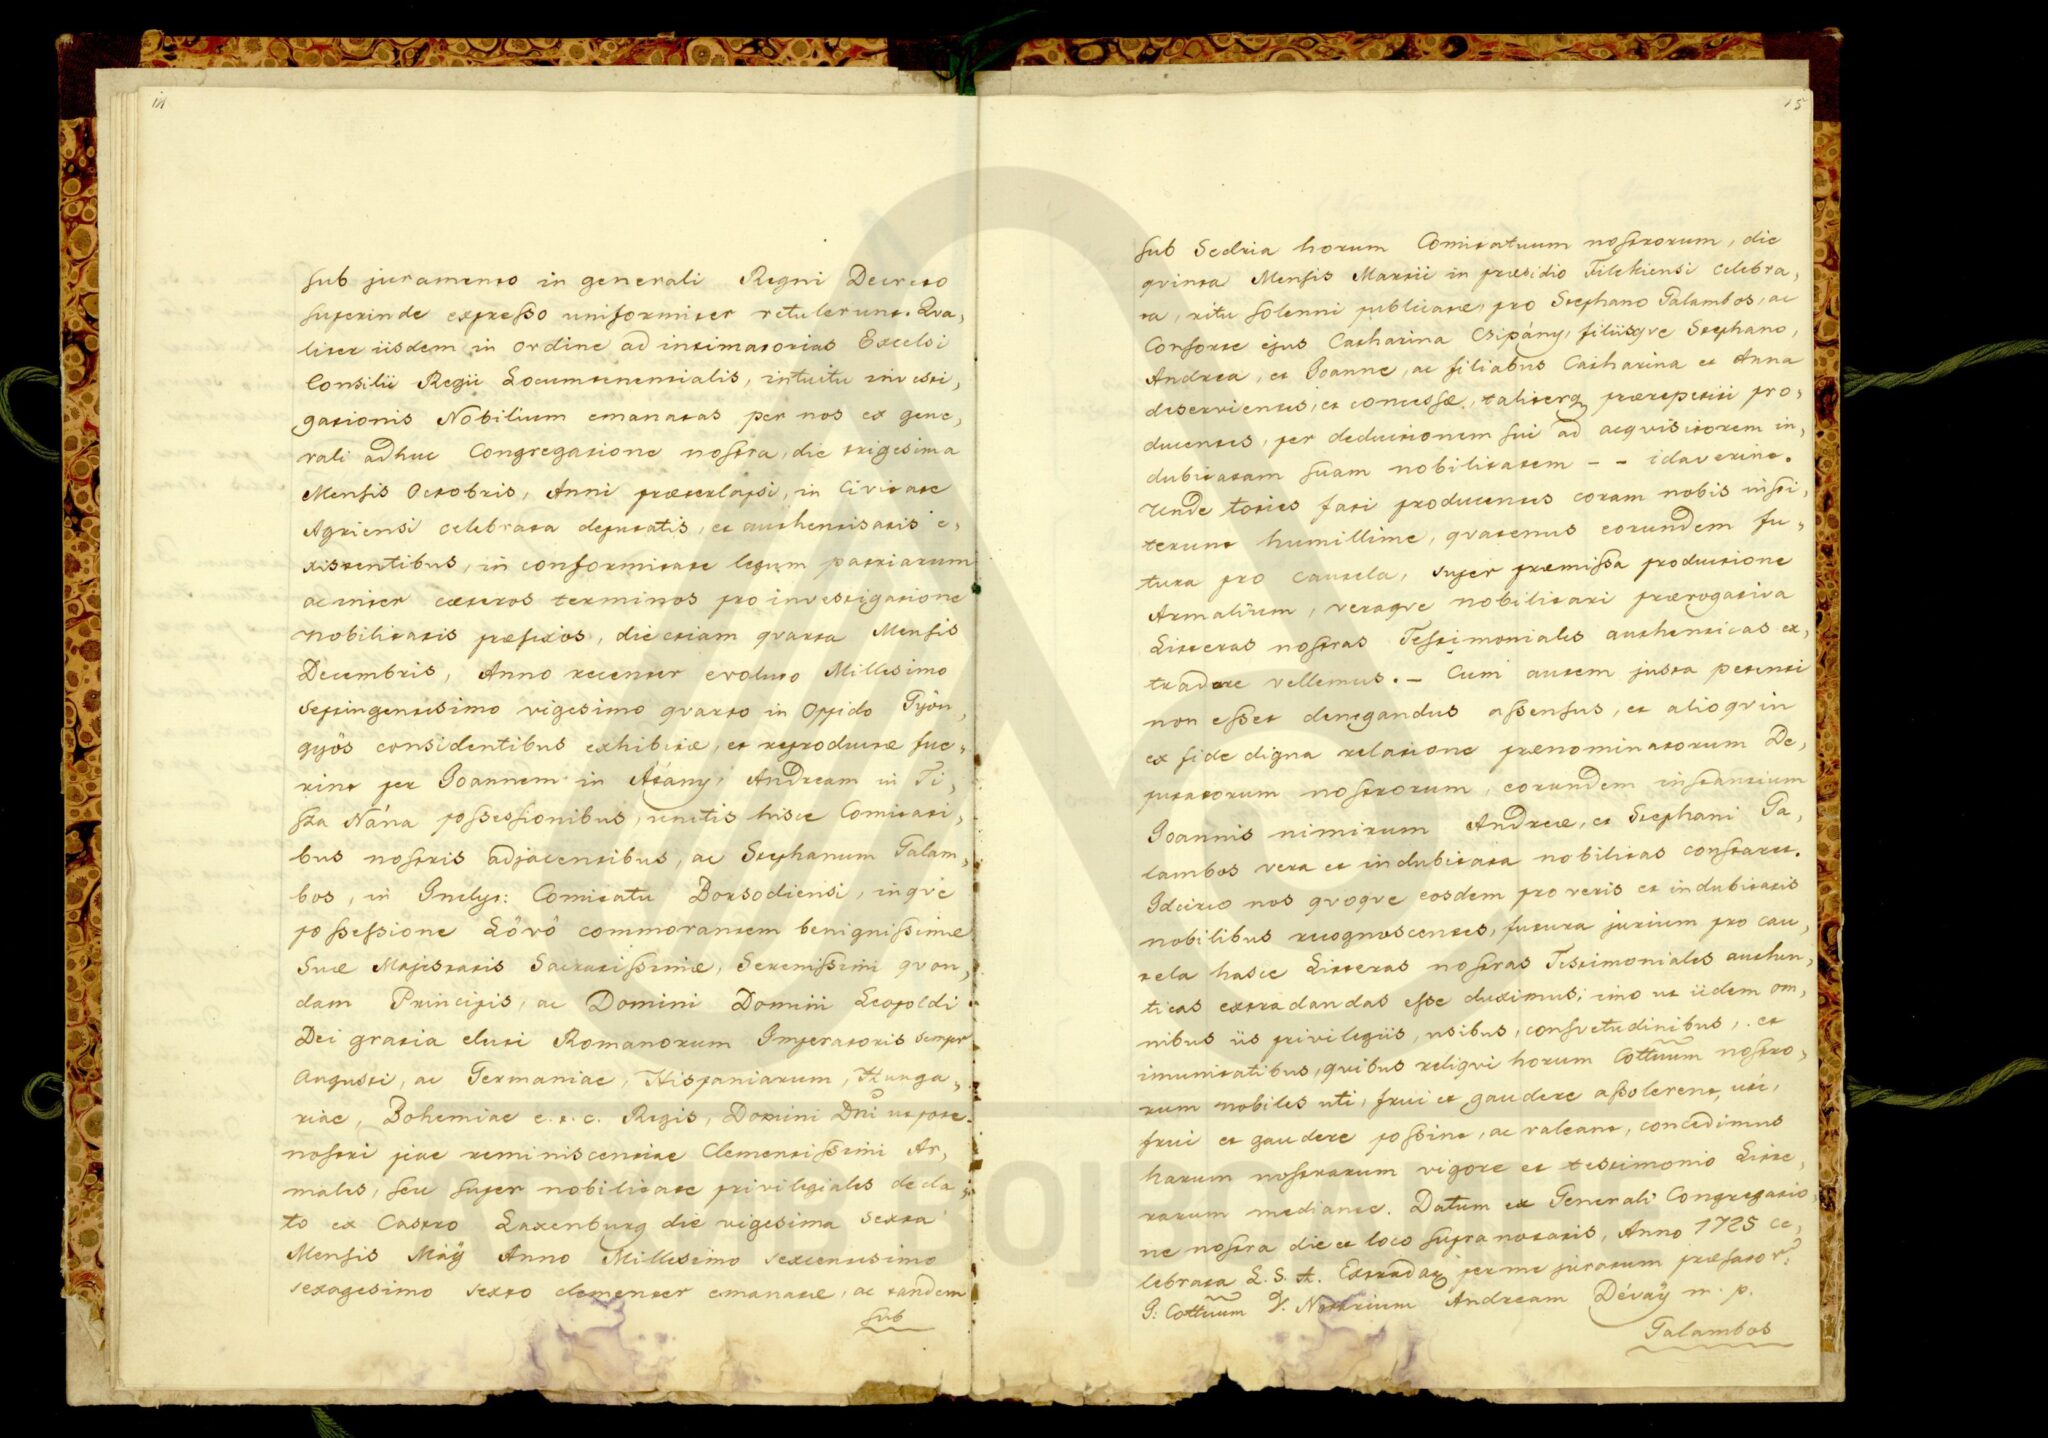 14
sub juramento in generali Regni Decreto
superinde expresso uniformiter retulerunt. Qva,
liter iisdem in ordine ad intimatorias Excelsi
Consilii Regii Locumtenentialis, intuitu investi,
gationis Nobilium emanatas per nos ex gene,
rali adhuc Congregatione nostra, die trigesima
Mensis Octobris, Anni præterlapsi, in Civitate
Agriensi celebrata deputatis, et authentisatis e,
xistentibus, in conformitate legum patriarum
ac inter cæteros terminos pro investigatione
nobilitatis præfixos, die etiam qvarta Mensis
Decembris, Anno recenter evoluto Millesimo
septingentesimo vigesimo qvarto in Oppido Gyön,
gyös considentibus exhibitæ, et reproductæ fue,
rint per Joannem in Átány, Andream in Ti,
sza Nána possessionibus, unitis hisce Comitati,
bus nostris adjacentibus, ac Stephanum Galam,
bos, in Inclyt: Comitatu Borsodiensi, inqve
possessione Lövö commorantem benignissimæ
Suæ Majestatis Sacratissimæ, Serenissimi qvon,
dam Principis, ac Domini Domini Leopoldi
Dei gratia electi Romanorum Imperatoris semper
Augusti, ac Germaniae, Hispaniarum, Hunga,
riae, Bohemiae e. t. c. Regis, Domini Dni utpote
nostri piae reminiscentiae Clementissimi Ar,
males, seu super nobilitate privilegiales de da,
to ex Castro Laxenburg die vigesima sexta
Mensis Maÿ Anno Millesimo sexcentesimo
sexagesimo sexto clementer emanatæ, ac tandem
sub
15
sub Sedria horum Comitatuum nostrorum, die
qvinta Mensis Martii in præsidio Filekiensi celebra,
ta, ritu solenni publicatæ, pro Stephano Galambos, ac
Consorte ejus Catharina Csipány, filiisqve Stephano,
Andrea, et Joanne, ac filiabus Catharina et Anna
deservientes, et concessæ, taliterq præreperiti pro,
ducentes, per deductionem sui ad acqvisitorem in,
dubitatam suam nobilitatem - - idaverint.
Unde toties fati producentes coram nobis insti,
terunt humillime, qvatenus eorundem fu,
tura pro cautela, super præmissa productione
Armalium, veraqve nobilitari prærogativa
Litteras nostras Testimoniales authenticas ex,
tradere vellemus. - Cum autem justa petenti
non esset denegandus assensus, et alioqvin
ex fide digna relatione prænominatorum De,
putatorum nostrorum, eorundem instantium
Joannis nimirum Andreæ, et Stephani Ga,
lambos vera et indubitata nobilitas constaret.
Idcirco nos qvoqve eosdem pro veris et indubitatis
nobilibus recognoscentes, futura jurium pro cau,
tela hasce Litteras nostras Testimoniales authen,
ticas extradandas esse duximus; imo ut iidem om,
nibus iis privilegiis, usibus, consvetudinibus, et
imunitatibus, qvibus reliqvi horum Cottuum nostro,
rum nobiles uti, frui et gaudere assolerent, uti,
frui et gaudere possint, ac valeant, concedimus
harum nostrarum vigore et testimonio Litte,
rarum mediante. Datum ex Generali Congregatio,
ne nostra die et loco supra notatis, Anno 1725 ce,
lebrata L. S. Extradat per me juratum præfator
I: Cottuum V. Notarium Andream Dévaÿ m. p.
Galambos